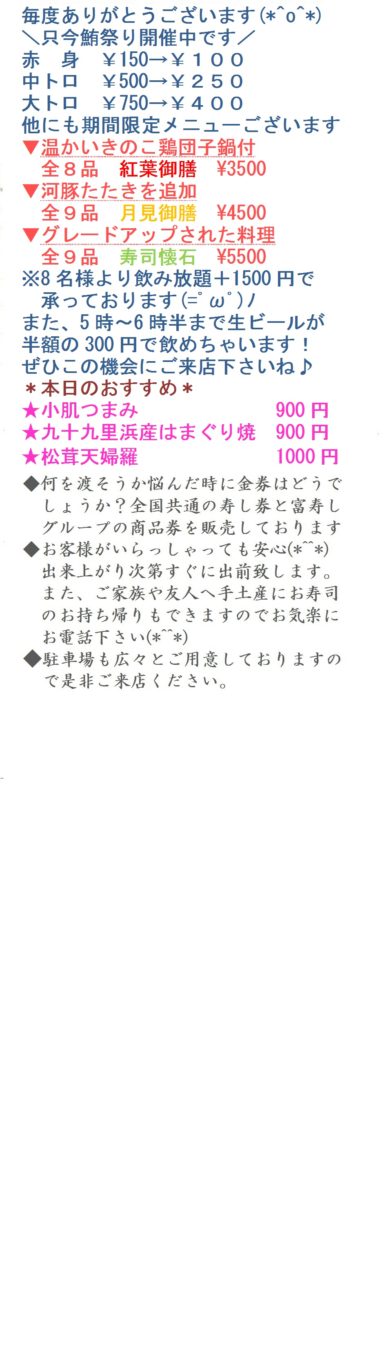 毎度ありがとうございます(*^o^*)
＼只今鮪祭り開催中です／
赤　身　￥150→￥１００
中トロ　￥500→￥２５０
大トロ　￥750→￥４００
他にも期間限定メニューございます
▼温かいきのこ鶏団子鍋付
全８品　紅葉御膳　¥3500
▼河豚たたきを追加
全９品　月見御膳　¥4500
▼グレードアップされた料理
全９品　寿司懐石　¥5500
※8名様より飲み放題＋1500円で
承っております(=ﾟωﾟ)ﾉ
また、5時～6時半まで生ビールが
半額の300円で飲めちゃいます！
ぜひこの機会にご来店下さいね♪
＊本日のおすすめ＊
★小肌つまみ　900円
★九十九里浜産はまぐり焼　900円
★松茸天婦羅　1000円
◆何を渡そうか悩んだ時に金券はどうで
しょうか？全国共通の寿し券と富寿し
グループの商品券を販売しております
◆お客様がいらっしゃっても安心(*^^*)
出来上がり次第すぐに出前致します。
また、ご家族や友人へ手土産にお寿司
のお持ち帰りもできますのでお気楽に
お電話下さい(*^^*)
◆駐車場も広々とご用意しておりますの
で是非ご来店ください。